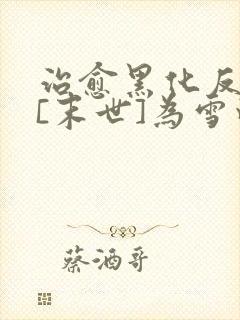 治愈黑化反
[末世]为雪
蔡酒哥